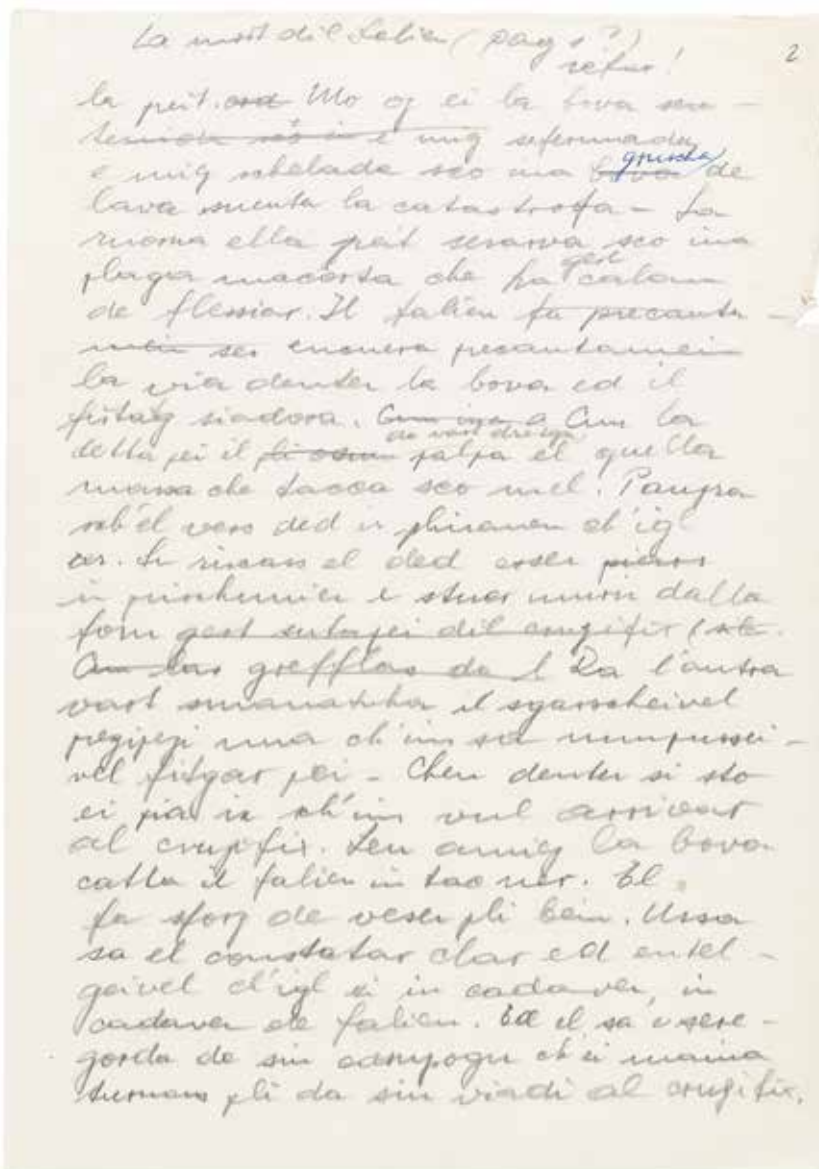 La mort dil falien (pag 1?)
refar!
2
la peit. Mo oz ei la bova
e mig sefermada
e mig schelada sco ina bova gruscha de
lava suenter la catastrofa – La
ruosna ella peit searva sco ina
plaga macorta che ha gest calau
de flessiar. Il falien fa precauta-
mein ses encuera precautamein
la via denter la bova ed il
siadora. Cun la
detta pei il da vart dretga palpa el quella
massa che tacca sco mel. Paupra
sch'el vess ded ir plinaven ch'igl
ei. In ded esser
in prischunier e stuer murir dalla
fom gest sutapei dil crucifix
Cun las grefflas da l Da l'autra
vart smanatscha il sgarscheivel
precipeci nua ch'ins sa nunpussei-
vel fitgar pei – Cheu denter si sto
ei pia ir sch'ins vul arrivar
al crucifix. Leu amiez la bova
catta il falien in tac ner. El
fa sforz de veser pli bein. Ussa
sa el constatar clar ed entel-
geivel ch'igl ei in cadaver, in
cadaver de falien. Ed el sa sere-
gorda de siu cumpogn ch'ei maina
turnaus pli da siu viadi al crucifix.